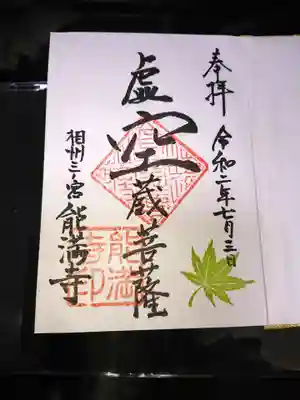 奉拝
令和二年七月三日
虚空蔵菩薩
相州三宮能満寺
能満寺印